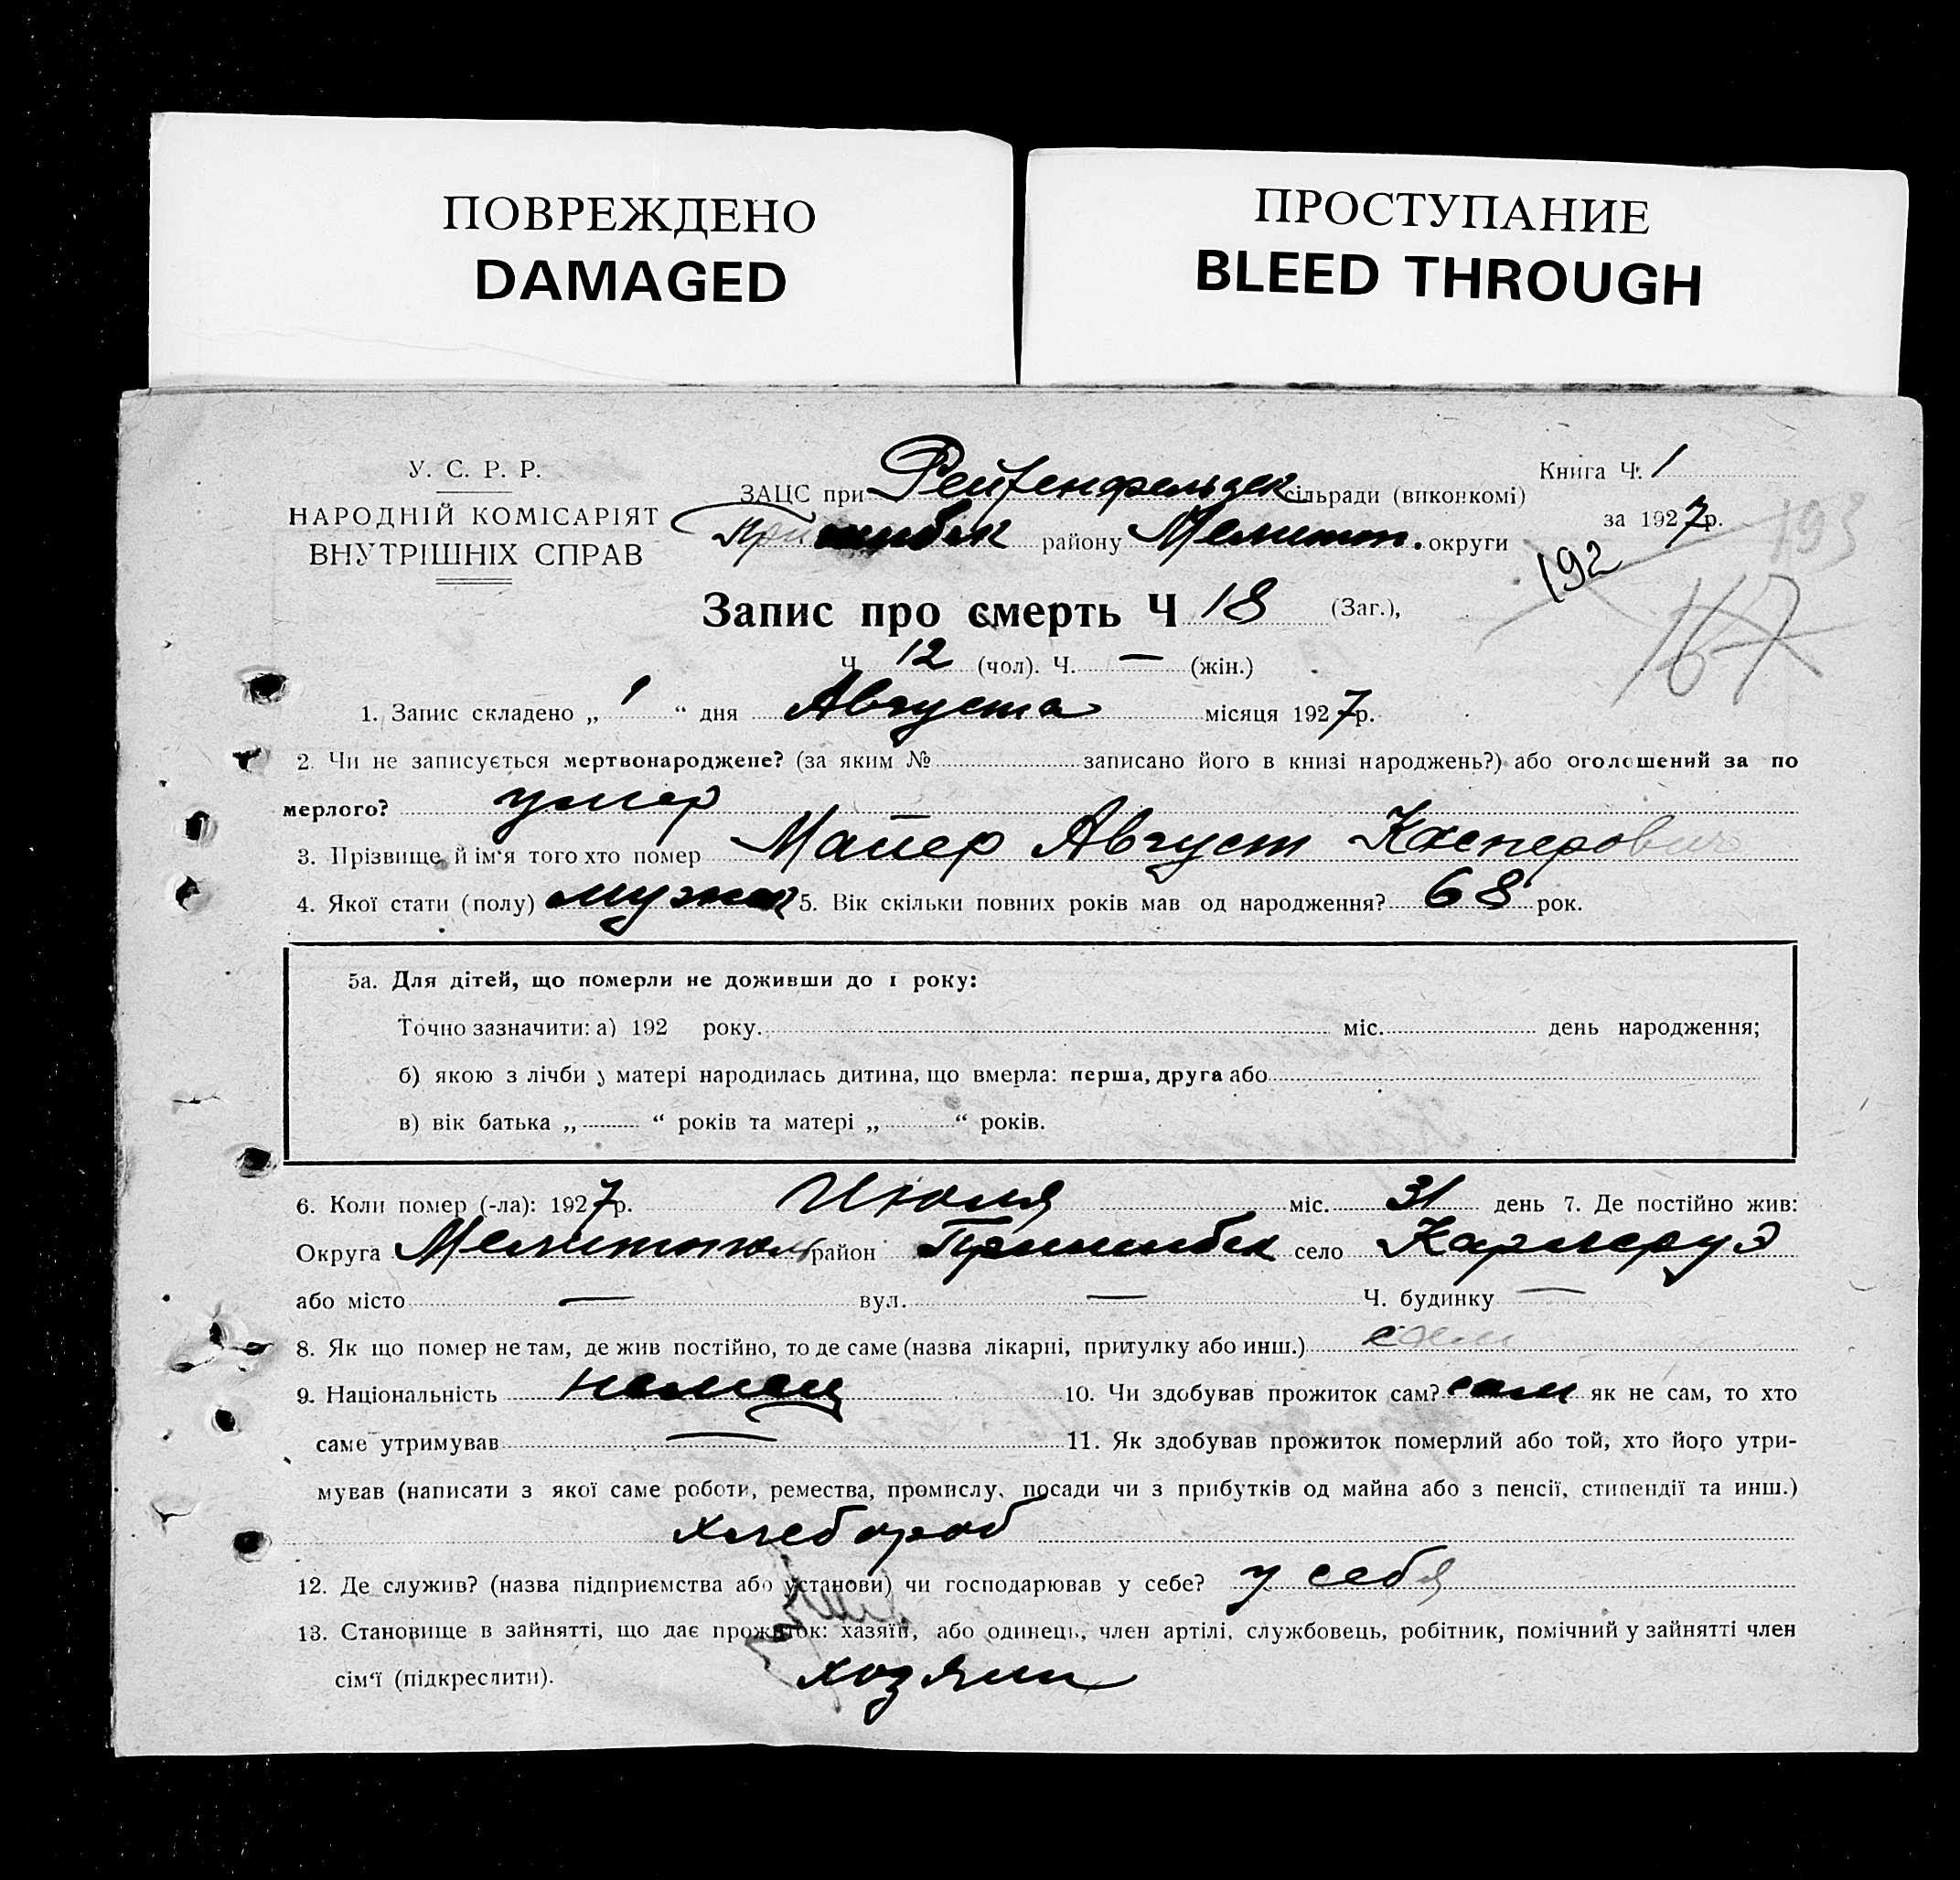 ПОВРЕЖДЕНО
DAMAGED
ПРОСТУПАНИЕ
BLEED THROUGH
У. С. Р. Р.
НАРОДНІЙ КОМІСАРІЯТ
ВНУТРІШНІХ СПРАВ
ЗАЦС при Рейхенфельдск сільради (виконкомі)
Пришибск району Мелитоп. округи
Книга Ч. 1
за 1927р.
193
192
167
Запис про смерть Ч 18 (Заг.),
Ч. 12 (чол). Ч. — (жін.)
1. Запис складено „ 1 “ дня Августа місяця 1927р.
2. Чи не записується мертвонароджене? (за яким № записано його в книзі народжень?) або оголошений за по
мерлого? умер
3. Прізвище й ім'я того хто помер Майер Август Касперович
4. Якої стати (полу) мужск 5. Вік скільки повних років мав од народження? 68 рок.
5а. Для дітей, що померли не доживши до 1 року:
Точно зазначити: а) 192 року. міс. день народження;
б) якою з лічби у матері народилась дитина, що вмерла: перша, друга або
в) вік батька „ “ років та матері „ “ років.
6. Коли помер (-ла): 1927р. Июля міс. 31 день 7. Де постійно жив:
Округа Мелитопол район Пришибск село Карлсруэ
або місто — вул. — Ч. будинку —
8. Як що помер не там, де жив постійно, то де саме (назва лікарні, притулку або инш.)
9. Національність немец 10. Чи здобував прожиток сам? сам як не сам, то хто
саме утримував — 11. Як здобував прожиток померлий або той, хто його утри-
мував (написати з якої саме роботи, ремества, промислу, посади чи з прибутків од майна або з пенсії, стипендії та инш.)
хлебороб
12. Де служив? (назва підприємства або установи) чи господарював у себе? у себя
13. Становище в зайнятті, що дає прожиток: хазяїн, або одинець, член артілі, службовець, робітник, помічний у зайнятті член
сім'ї (підкреслити). хозяин